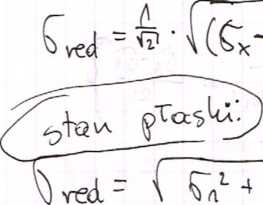 σred = 1/√2 · √(σx -
stan płaski:
σred = √ σ1² +